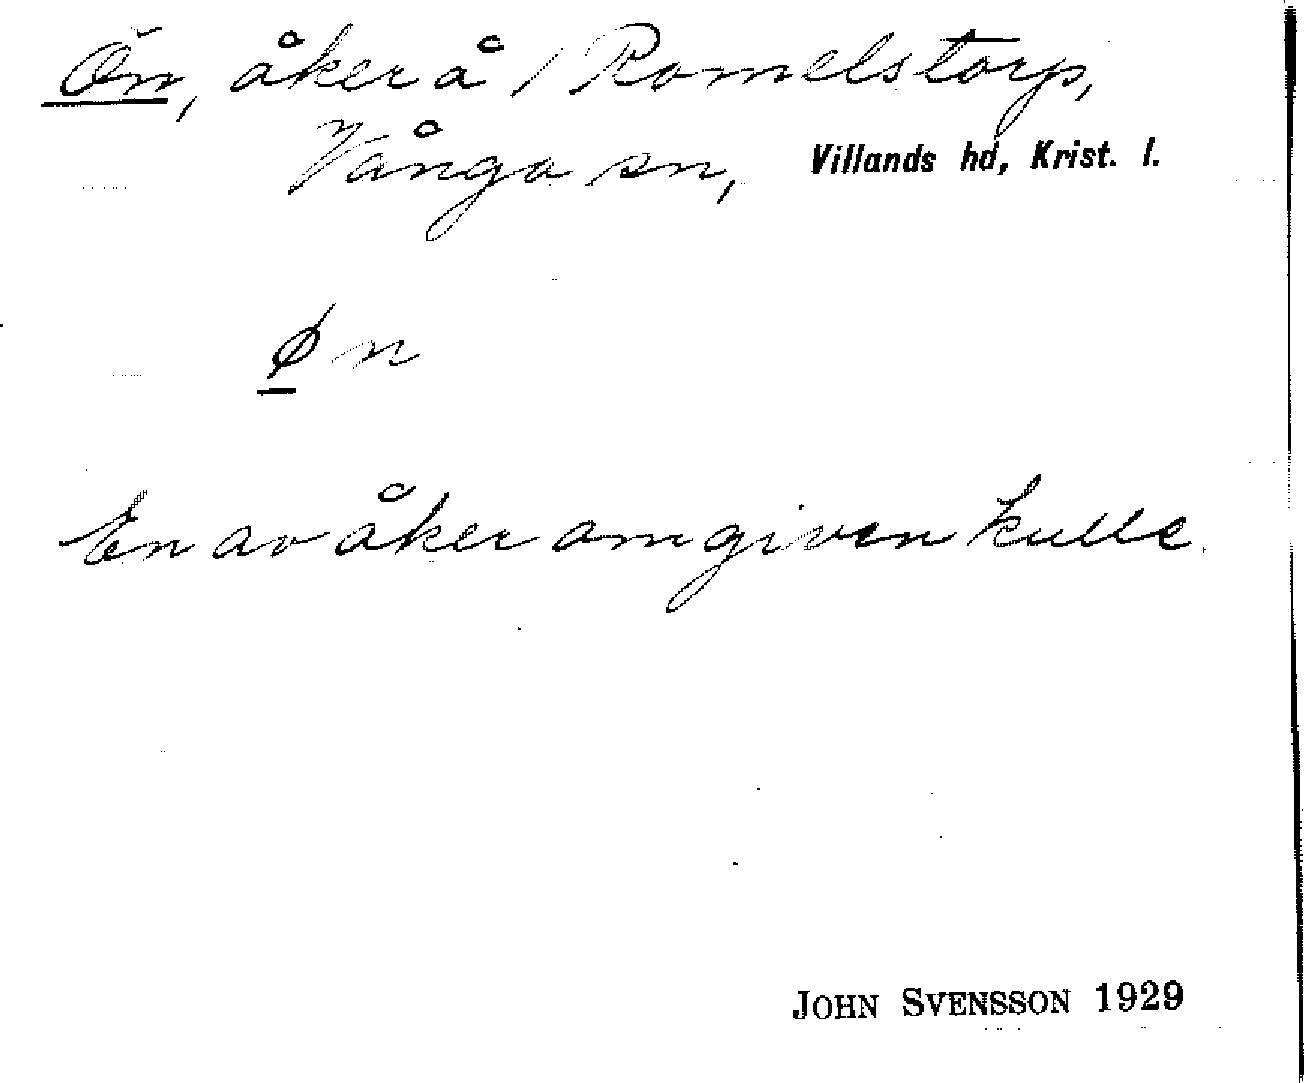 Ön, åker å / Romelstorp,
Vånga sn, Villands hd, Krist. l.
øn
En av åker omgiven kulle.
JOHN SVENSSON 1929